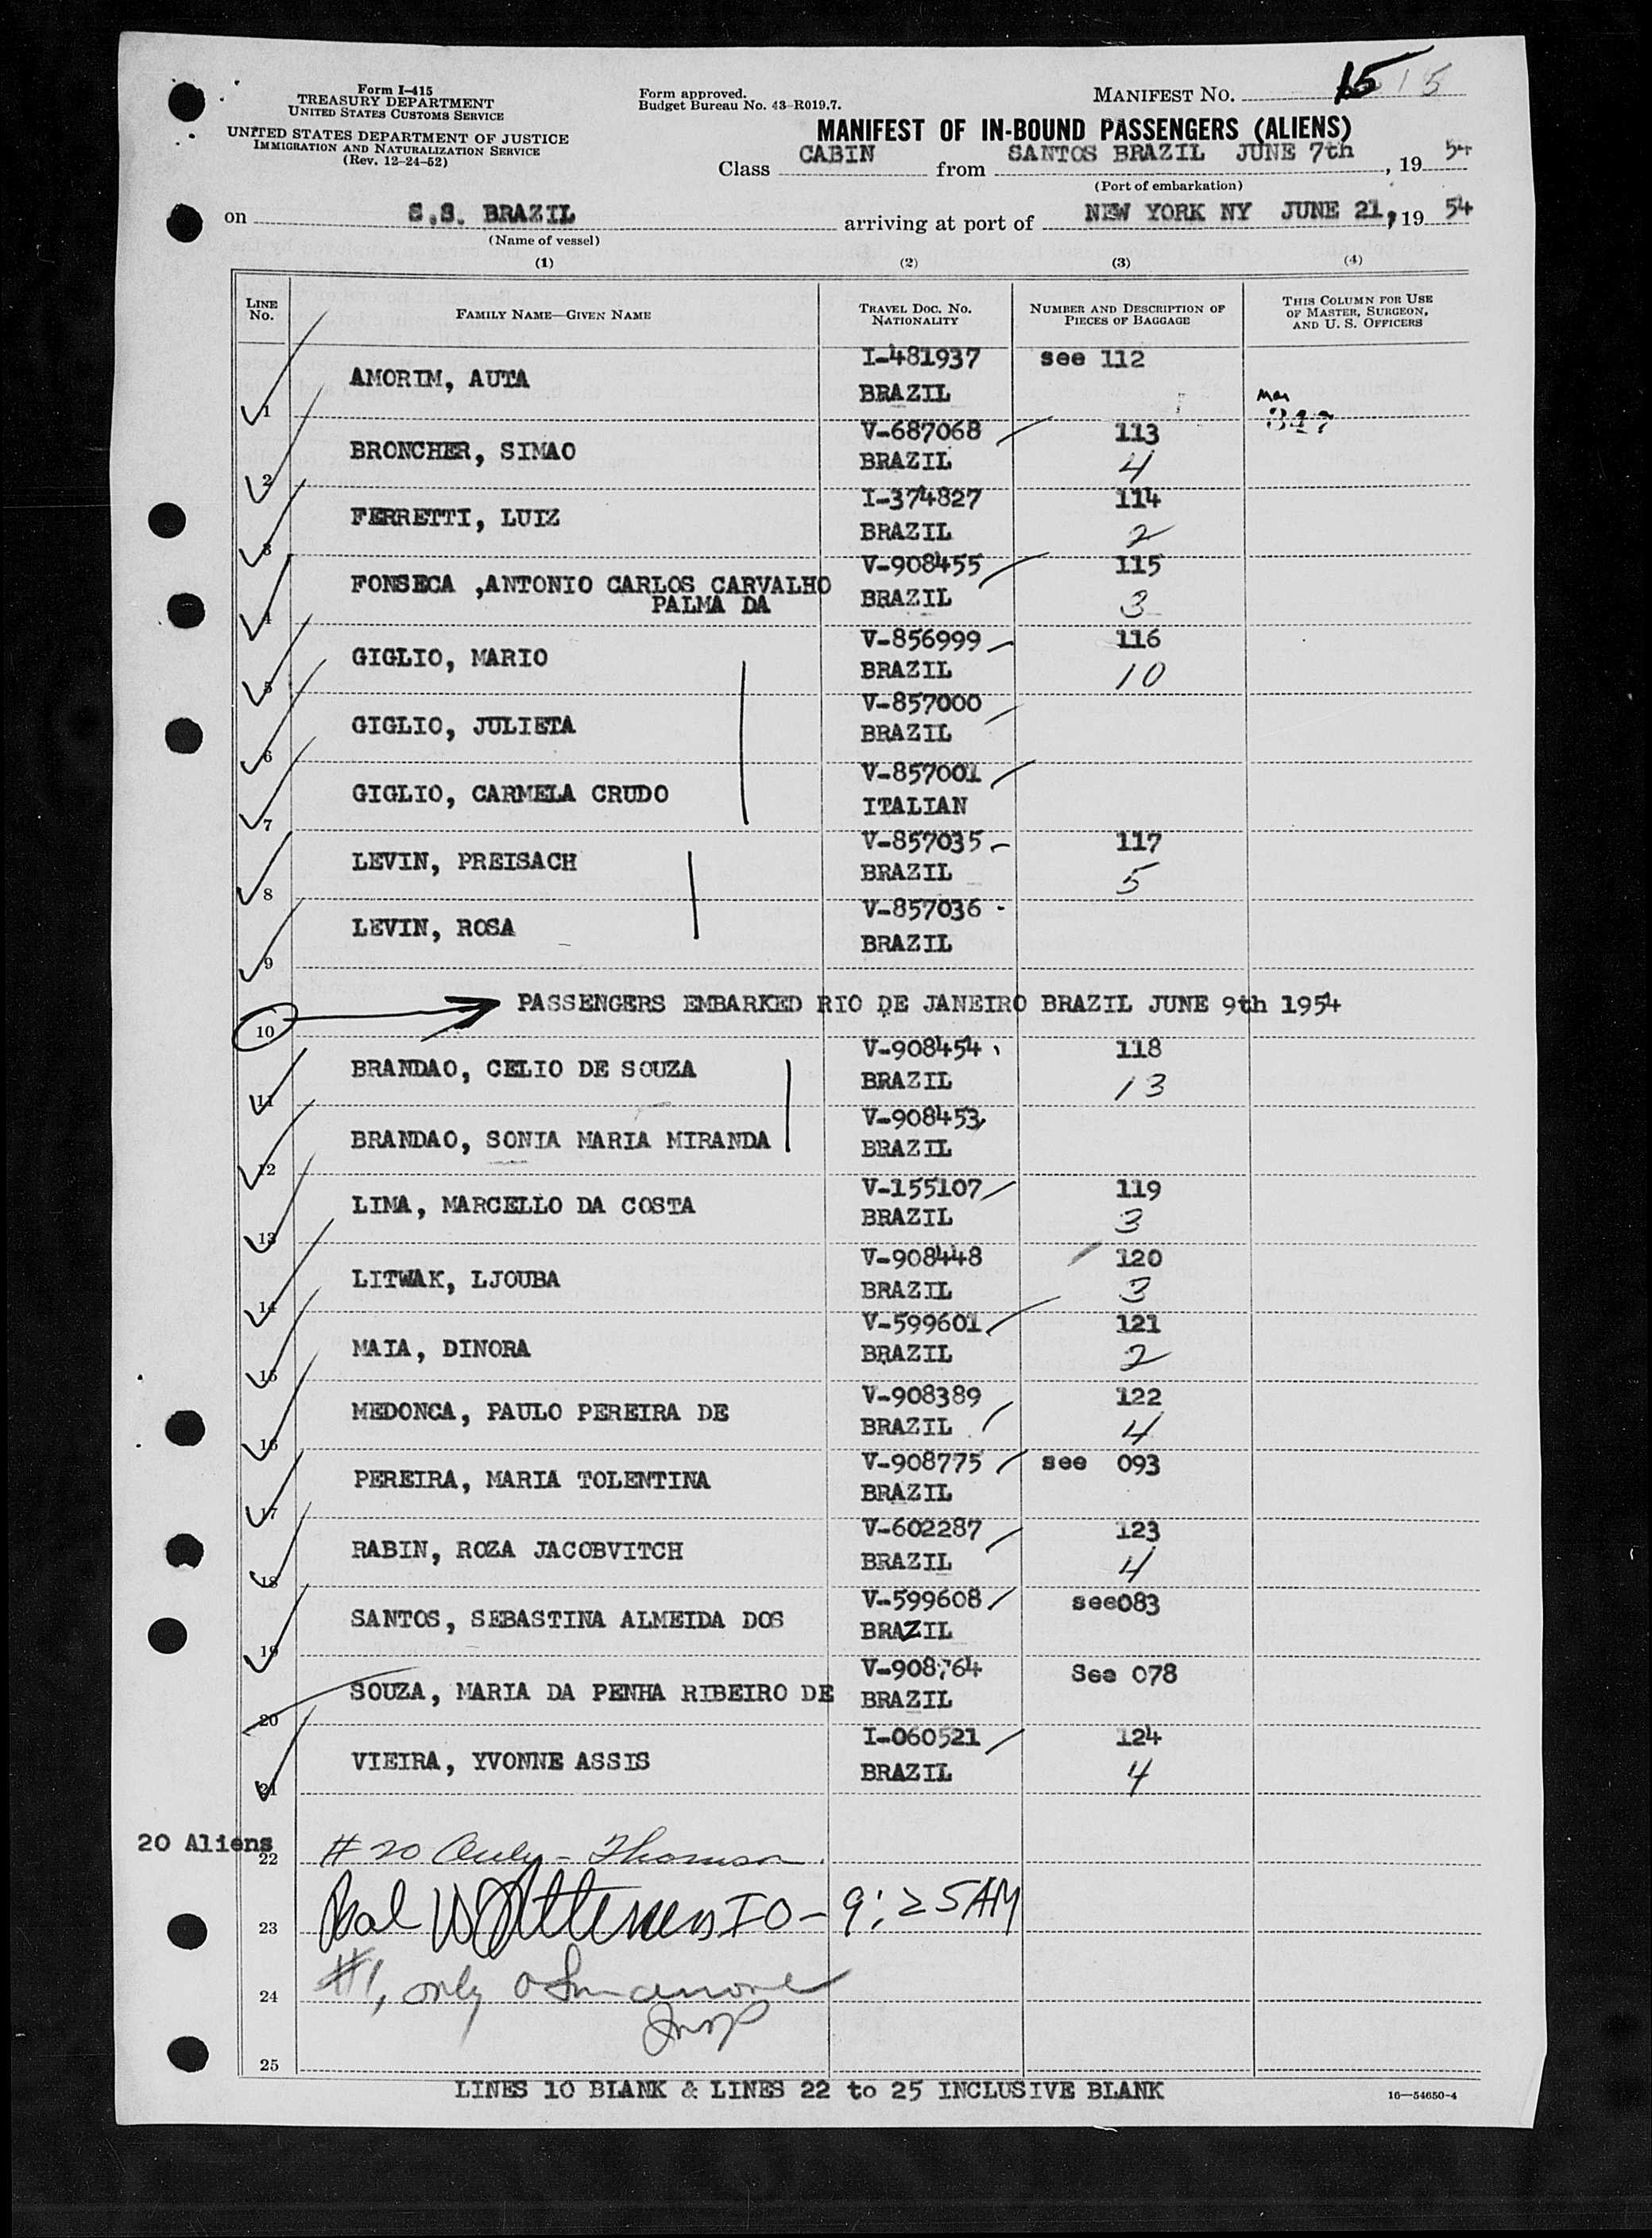 Form I-415
TREASURY DEPARTMENT
UNITED STATES CUSTOMS SERVICE
UNITED STATES DEPARTMENT OF JUSTICE
IMMIGRATION AND NATURALIZATION SERVICE
(Rev. 12-24-52)
Form approved.
Budget Bureau No. 43-R019.7.
MANIFEST NO. 15 15
MANIFEST OF IN-BOUND PASSENGERS (ALIENS)
Class CABIN from SANTOS BRAZIL JUNE 7th, 19 54
(Port of embarkation)
on S.S. BRAZIL arriving at port of NEW YORK NY JUNE 21, 19 54
(Name of vessel)
(1) (2) (3) (4)
LINE No. FAMILY NAME—GIVEN NAME TRAVEL DOC. NO. NATIONALITY NUMBER AND DESCRIPTION OF PIECES OF BAGGAGE THIS COLUMN FOR USE OF MASTER, SURGEON, AND U. S. OFFICERS
1 AMORIM, AUTA I-481937 BRAZIL see 112 347
2 BRONCHER, SIMAO V-687068 BRAZIL 113 4
3 FERRETTI, LUIZ I-374827 BRAZIL 114 2
4 FONSECA ,ANTONIO CARLOS CARVALHO PALMA DA V-908455 BRAZIL 115 3
5 GIGLIO, MARIO V-856999 BRAZIL 116 10
6 GIGLIO, JULIETA V-857000 BRAZIL
7 GIGLIO, CARMELA CRUDO V-857001 ITALIAN
8 LEVIN, PREISACH V-857035 BRAZIL 117 5
9 LEVIN, ROSA V-857036 BRAZIL
10 PASSENGERS EMBARKED RIO DE JANEIRO BRAZIL JUNE 9th 1954
11 BRANDAO, CELIO DE SOUZA V-908454 BRAZIL 118 13
12 BRANDAO, SONIA MARIA MIRANDA V-908453 BRAZIL
13 LIMA, MARCELLO DA COSTA V-155107 BRAZIL 119 3
14 LITWAK, LJOUBA V-908448 BRAZIL 120 3
15 MAIA, DINORA V-599601 BRAZIL 121 2
16 MEDONCA, PAULO PEREIRA DE V-908389 BRAZIL 122 4
17 PEREIRA, MARIA TOLENTINA V-908775 BRAZIL see 093
18 RABIN, ROZA JACOBVITCH V-602287 BRAZIL 123 4
19 SANTOS, SEBASTINA ALMEIDA DOS V-599608 BRAZIL see083
20 SOUZA, MARIA DA PENHA RIBEIRO DE V-908764 BRAZIL See 078
21 VIEIRA, YVONNE ASSIS I-060521 BRAZIL 124 4
20 Aliens
22 #20 Only - Thomson
23 IO - 9:25 AM
24 #1, only
Insp
25
LINES 10 BLANK & LINES 22 to 25 INCLUSIVE BLANK
16—54650-4